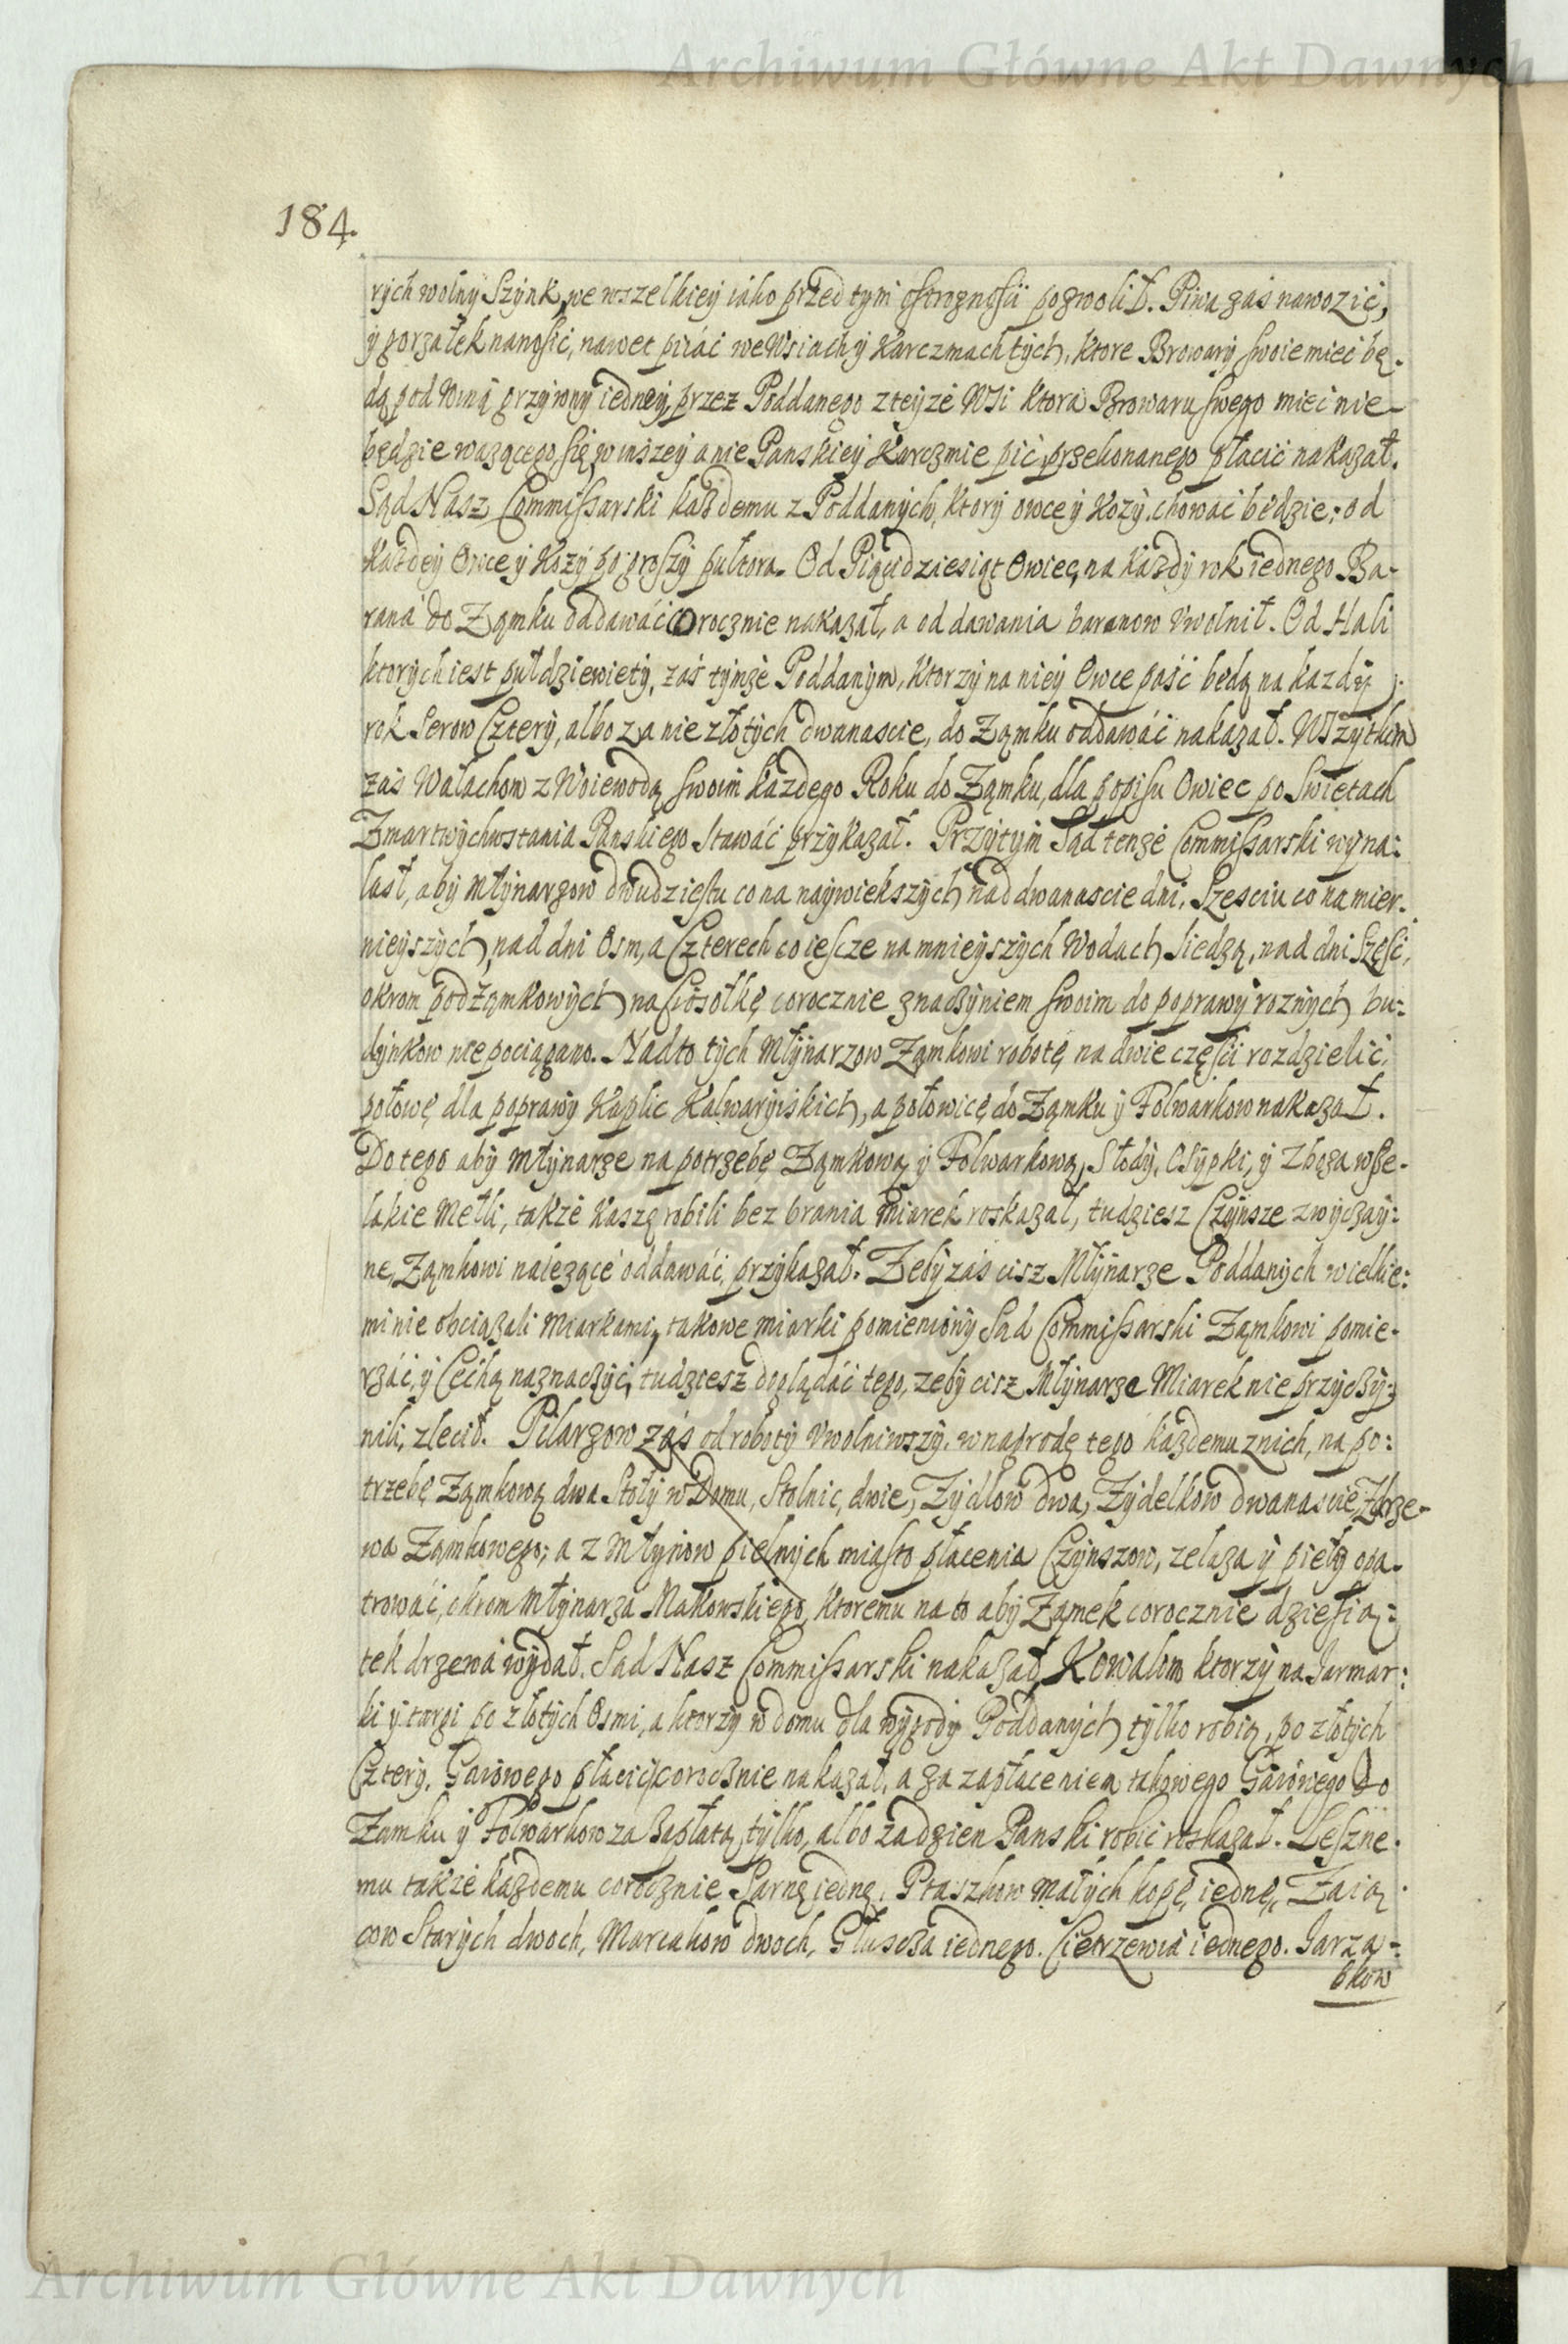 Archiwum Główne Akt Dawnych
184.
rych wolny Szynk, we wszelkiey iáko przed tym ostroznosci pozwolił. Piwa zas nawozić,
y gorzałek nanosić, nawet piiáć we Wsiach y Karczmach tych, ktore Browary swoie mieć bę-
dą pod winą grzywny iedney, przez Poddanego z teyże Wsi ktora Browaru swego mieć nie-
będzie wazącego się w inszey a nie Panskiey Karczmie pić, przekonanego płacić nakazał.
Sąd Nasz Commissarski każdemu z Poddanych, ktory owce y Kozy chować będzie: od
Każdey Owce y Kozy po groszy pułtora. Od Piąćidziesiąt Owiec, na Każdy rok iednego Ba-
rana do Zamku oddawáć corocznie nakazał, a od dawania baranow vwolnił. Od Hali
ktorych iest pułdziewięty, zaś tymże Poddanym, Ktorzy na niey Owce paść będą na kazdy
rok Serow Cztery, albo za nie złotych dwanascie, do Ząmku oddawáć nakazał. Wszytkim
zás Wałachom z Woiewodą swoim każdego Roku do Ząmku, dla popisu Owiec po Swiętach
Zmartwychwstania Pańskiego Stawáć przykazał. Przytym Sąd tenże Commissarski wyna:
lasł, aby Młynarzow dwudziestu co na naywiekszych nad dwanascie dni, Szesciu co na mier-
nieyszych, nad dni Osm, a Czterech co iescze na mnieyszych Wodach Siedzą, nad dni Szesc,
okrom podząmkowych na Ciosołkę corocznie z naczyniem swoim do poprawy roznych bu:
dynkow nie pociągano. Nádto tych Młynarzow Ząmkowi robotę na dwie części rozdzielić,
połowę dla poprawy Kaplic Kalwaryiskich, a połowicę do Ząmku y Folwarkow nakazał.
Do tego aby Młynarze na potrzebę Ząmkową y Folwarkową, Słody, Osypki, y Zboza wsze-
lakie Mełli, także Kaszę robili bez brania Miarek roskazał, tudziesz Czynsze zwyczay:
ne, Ząmkowi należące oddawáć przykazał. Zeby zaś cisz Młynarze Poddanych wielkie:
mi nie obciązali Miarkami, takowe miarki pomieniony Sąd Commissarski Ząmkowi pomie-
rzáć, y Cechą naznaczyć, tudziesz doglądáć tego, zeby cisz Młynarze Miarek nie przyczy-
nili, zlecił. Pilarzow zaś od roboty vwolniwszy, w nagrodę tego każdemu z nich, na po:
trzebę Ząmkową dwa Stoły w Domu, Stolnic, dwie, Zydlow dwa, Zydelkow dwanascie, Zdrze-
wa Ząmkowego; a z Młynow pielnych miasto płacenia Czynszow, zelaza y pieły opa-
trowáć, okrom Młynarza Makowskiego, Ktoremu na to aby Ząmek corocznie dziesią:
tek drzewa wydał, Sąd Nasz Commissarski nakazał, Kowalom ktorzy na Jarmar:
ki y targi po złotych Osmi, a ktorzy w domu dla wygody Poddanych tylko robią, po złotych
Cztery, Gaiowego płacić corocznie nakazał, a za zapłaceniem takowego Gaiowego do
Zamku y Folwarkow za zapłatą tylko, albo za dzien Panski robić roskazał. Leszne-
mu także każdemu corocznie Sarnę iednę, Ptaszkow Małych kopę iednę, Zaią
cow Starych dwoch, Marcakow dwoch, Głuscza iednego, Cietrzewia iednego. Jarzą-
bkow
Archiwum Główne Akt Dawnych